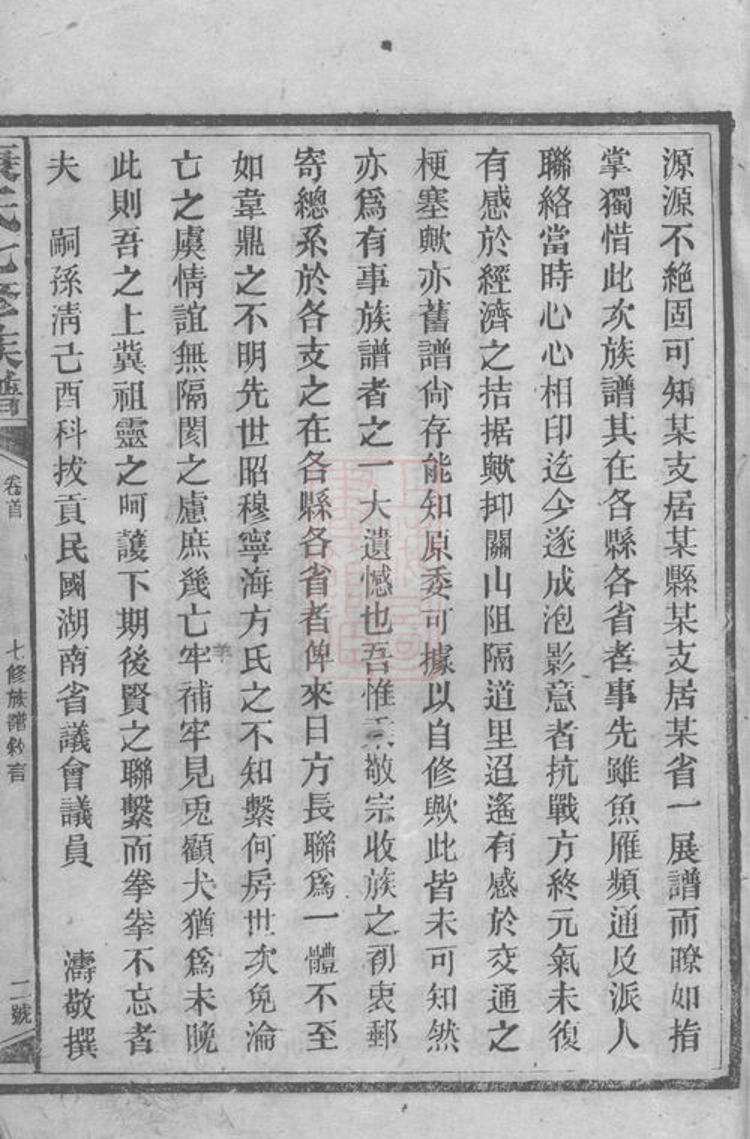 源源不絶固可知某支居某縣某支居某省一展譜而瞭如指
掌獨惜此次族譜其在各縣各省者事先雖魚雁頻通及派人
聯絡當時心心相印迄今遂成泡影意者抗戰方終元氣未復
有感於經濟之拮据歟抑關山阻隔道里迢遙有感於交通之
梗塞歟亦舊譜尙存能知原委可據以自修歟此皆未可知然
亦爲有事族譜者之一大遺憾也吾惟敬宗收族之初衷郵
寄總系於各支之在各縣各省者俾來日方長聯爲一體不至
如韋鼎之不明先世昭穆寧海方氏之不知繫何房世次免淪
亡之虞情誼無隔閡之慮庶幾亡牢補牢見兎顧犬猶爲未晚
羊
此則吾之上冀祖靈之呵護下期後賢之聯繫而拳拳不忘者
夫 嗣孫淸己酉科拔貢民國湖南省議會議員 濤敬撰
氏七修族譜
卷首
七修族譜敘言
二號